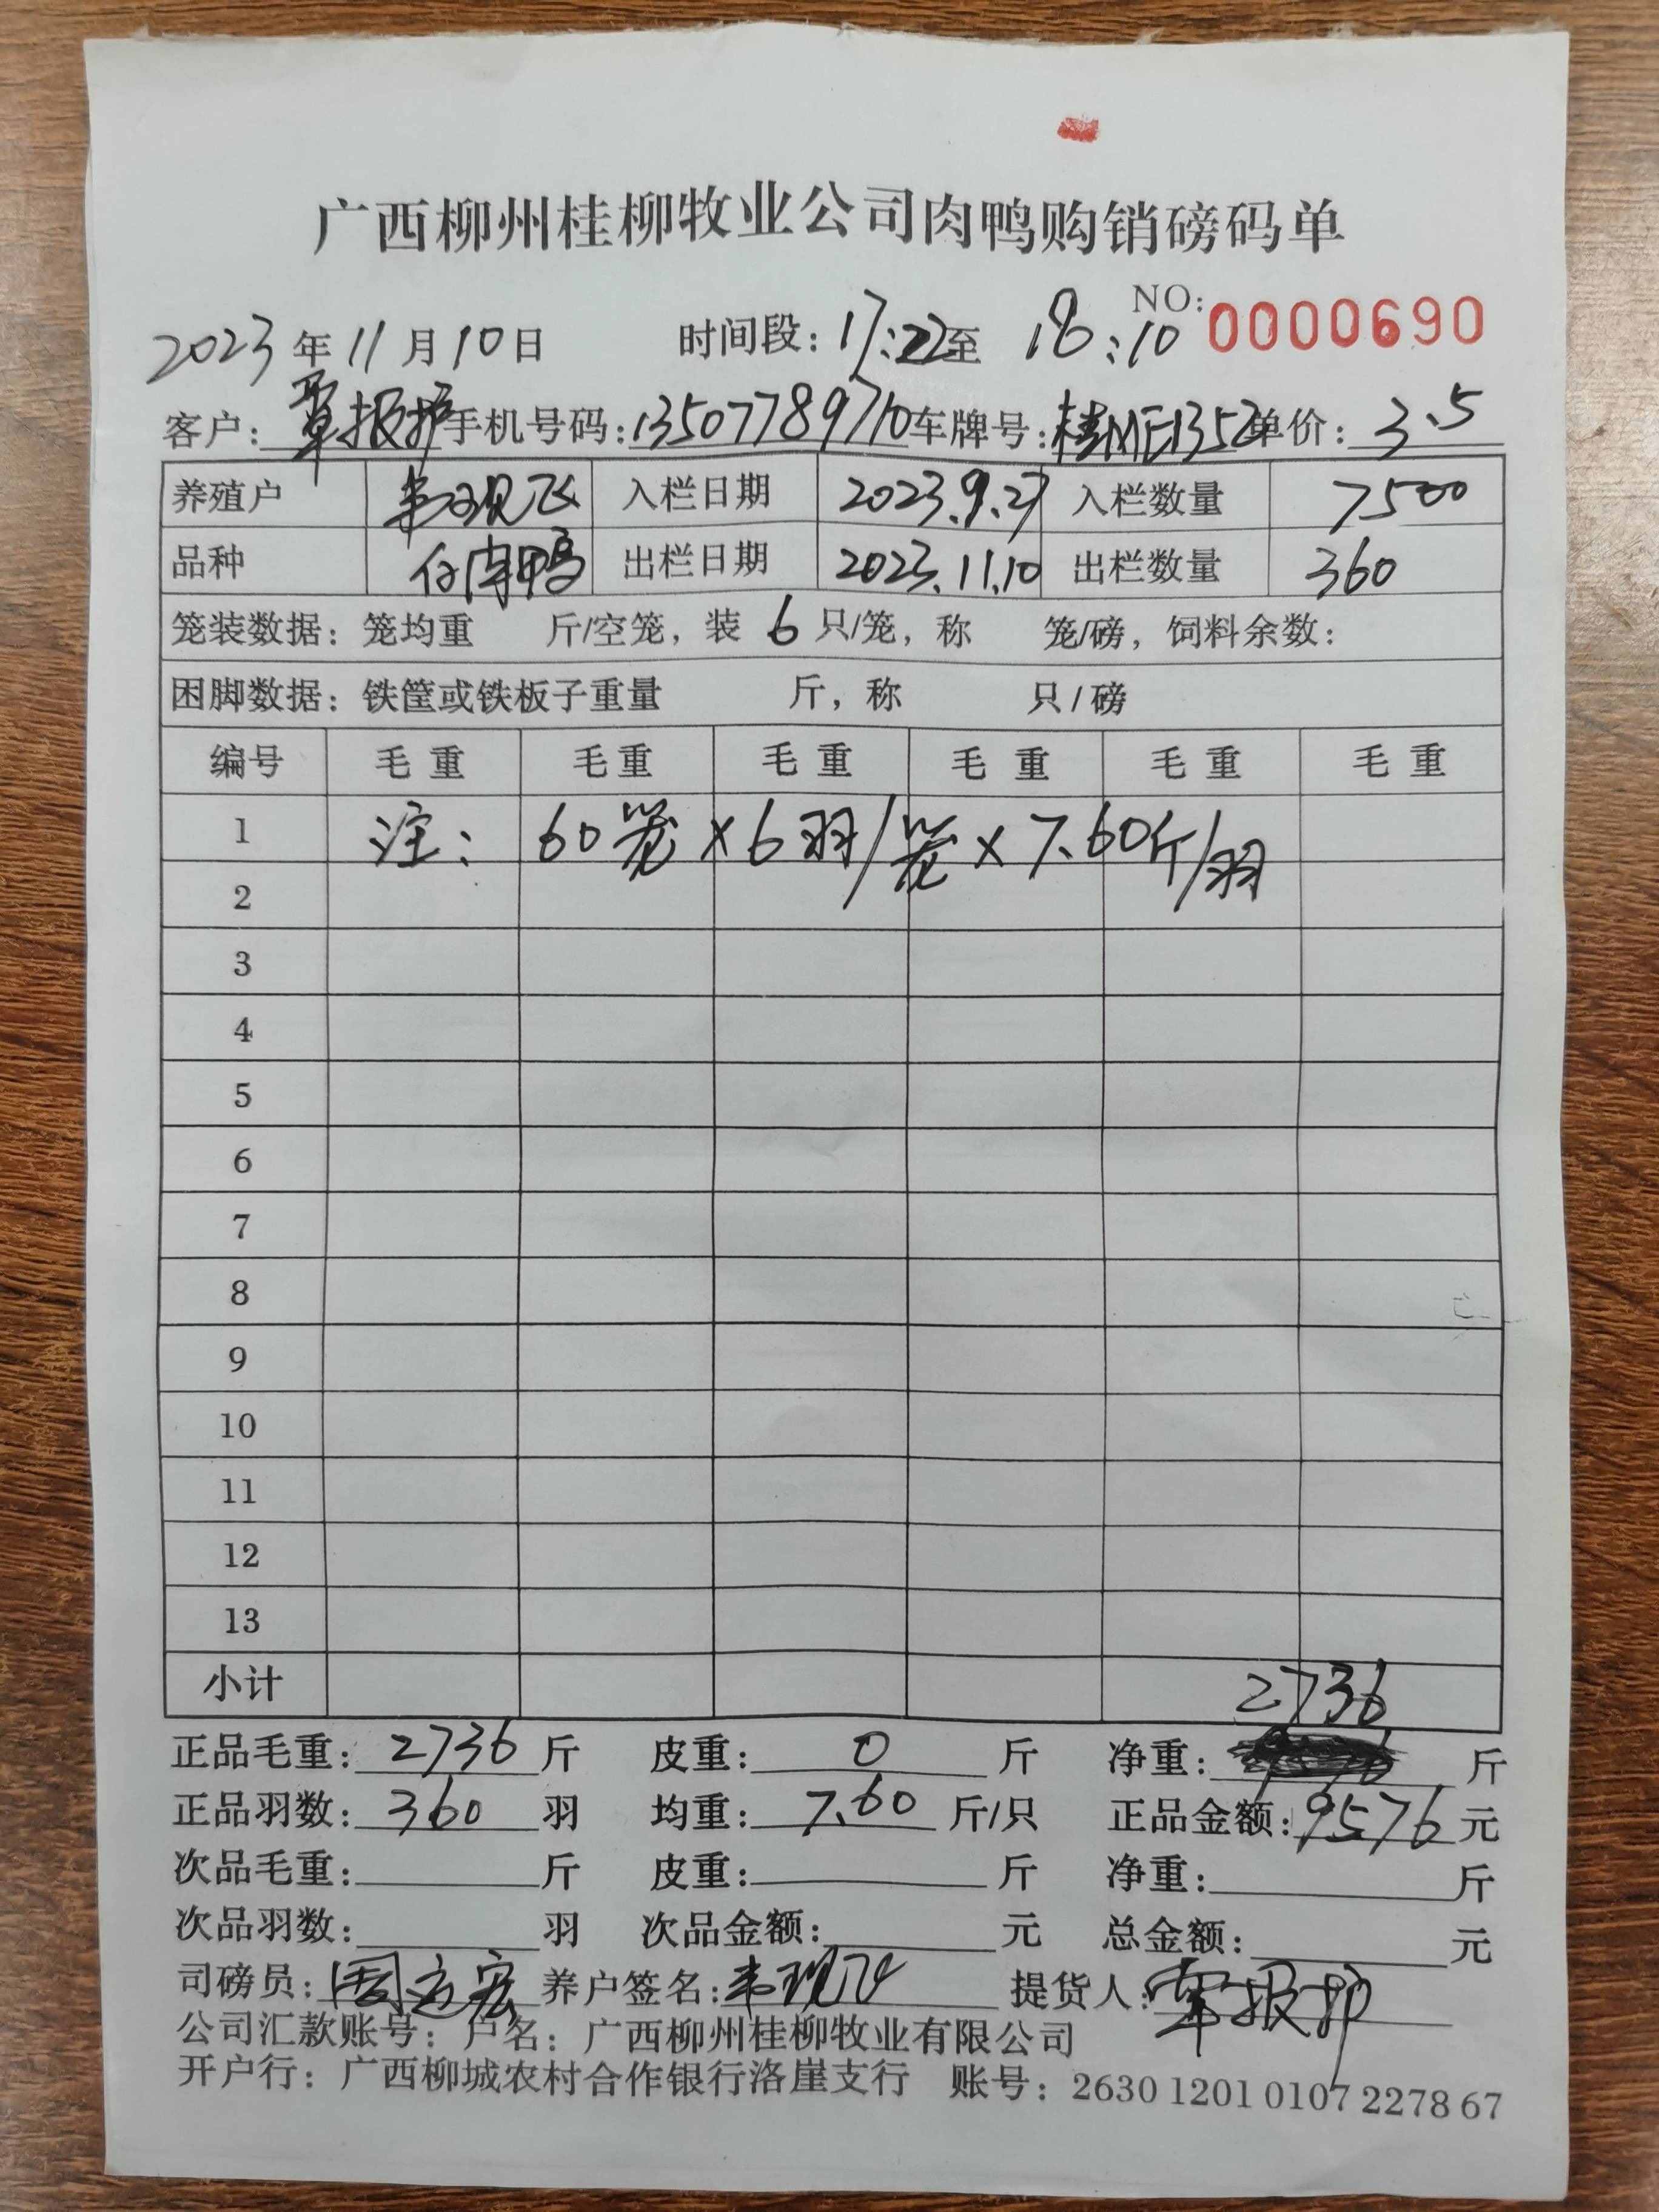 广西柳州桂柳牧业公司肉鸭购销磅码单
NO: 0000690
2023年11月10日 时间段: 17:22至 18:10
客户: 覃报护 手机号码: 13507789710 车牌号: 桂ME1352 单价: 3.5
养殖户 韦现飞 入栏日期 2023.9.27 入栏数量 7500
品种 鸭 出栏日期 2023.11.10 出栏数量 360
笼装数据: 笼均重 斤/空笼, 装 6 只/笼, 称 笼/磅, 饲料余数:
困脚数据: 铁筐或铁板子重量 斤, 称 只/磅
编号 毛重 毛重 毛重 毛重 毛重 毛重
1 注: 60笼×6羽/笼×7.60斤/羽
2
3
4
5
6
7
8
9
10
11
12
13
小计 2736
正品毛重: 2736 斤 皮重: 0 斤 净重: 斤
正品羽数: 360 羽 均重: 7.60 斤/只 正品金额: 9576 元
次品毛重: 斤 皮重: 斤 净重: 斤
次品羽数: 羽 次品金额: 元 总金额: 元
司磅员: 周立宏 养户签名: 韦现飞 提货人: 覃报护
公司汇款账号: 户名: 广西柳州桂柳牧业有限公司
开户行: 广西柳城农村合作银行洛崖支行 账号: 2630 1201 0107 2278 67